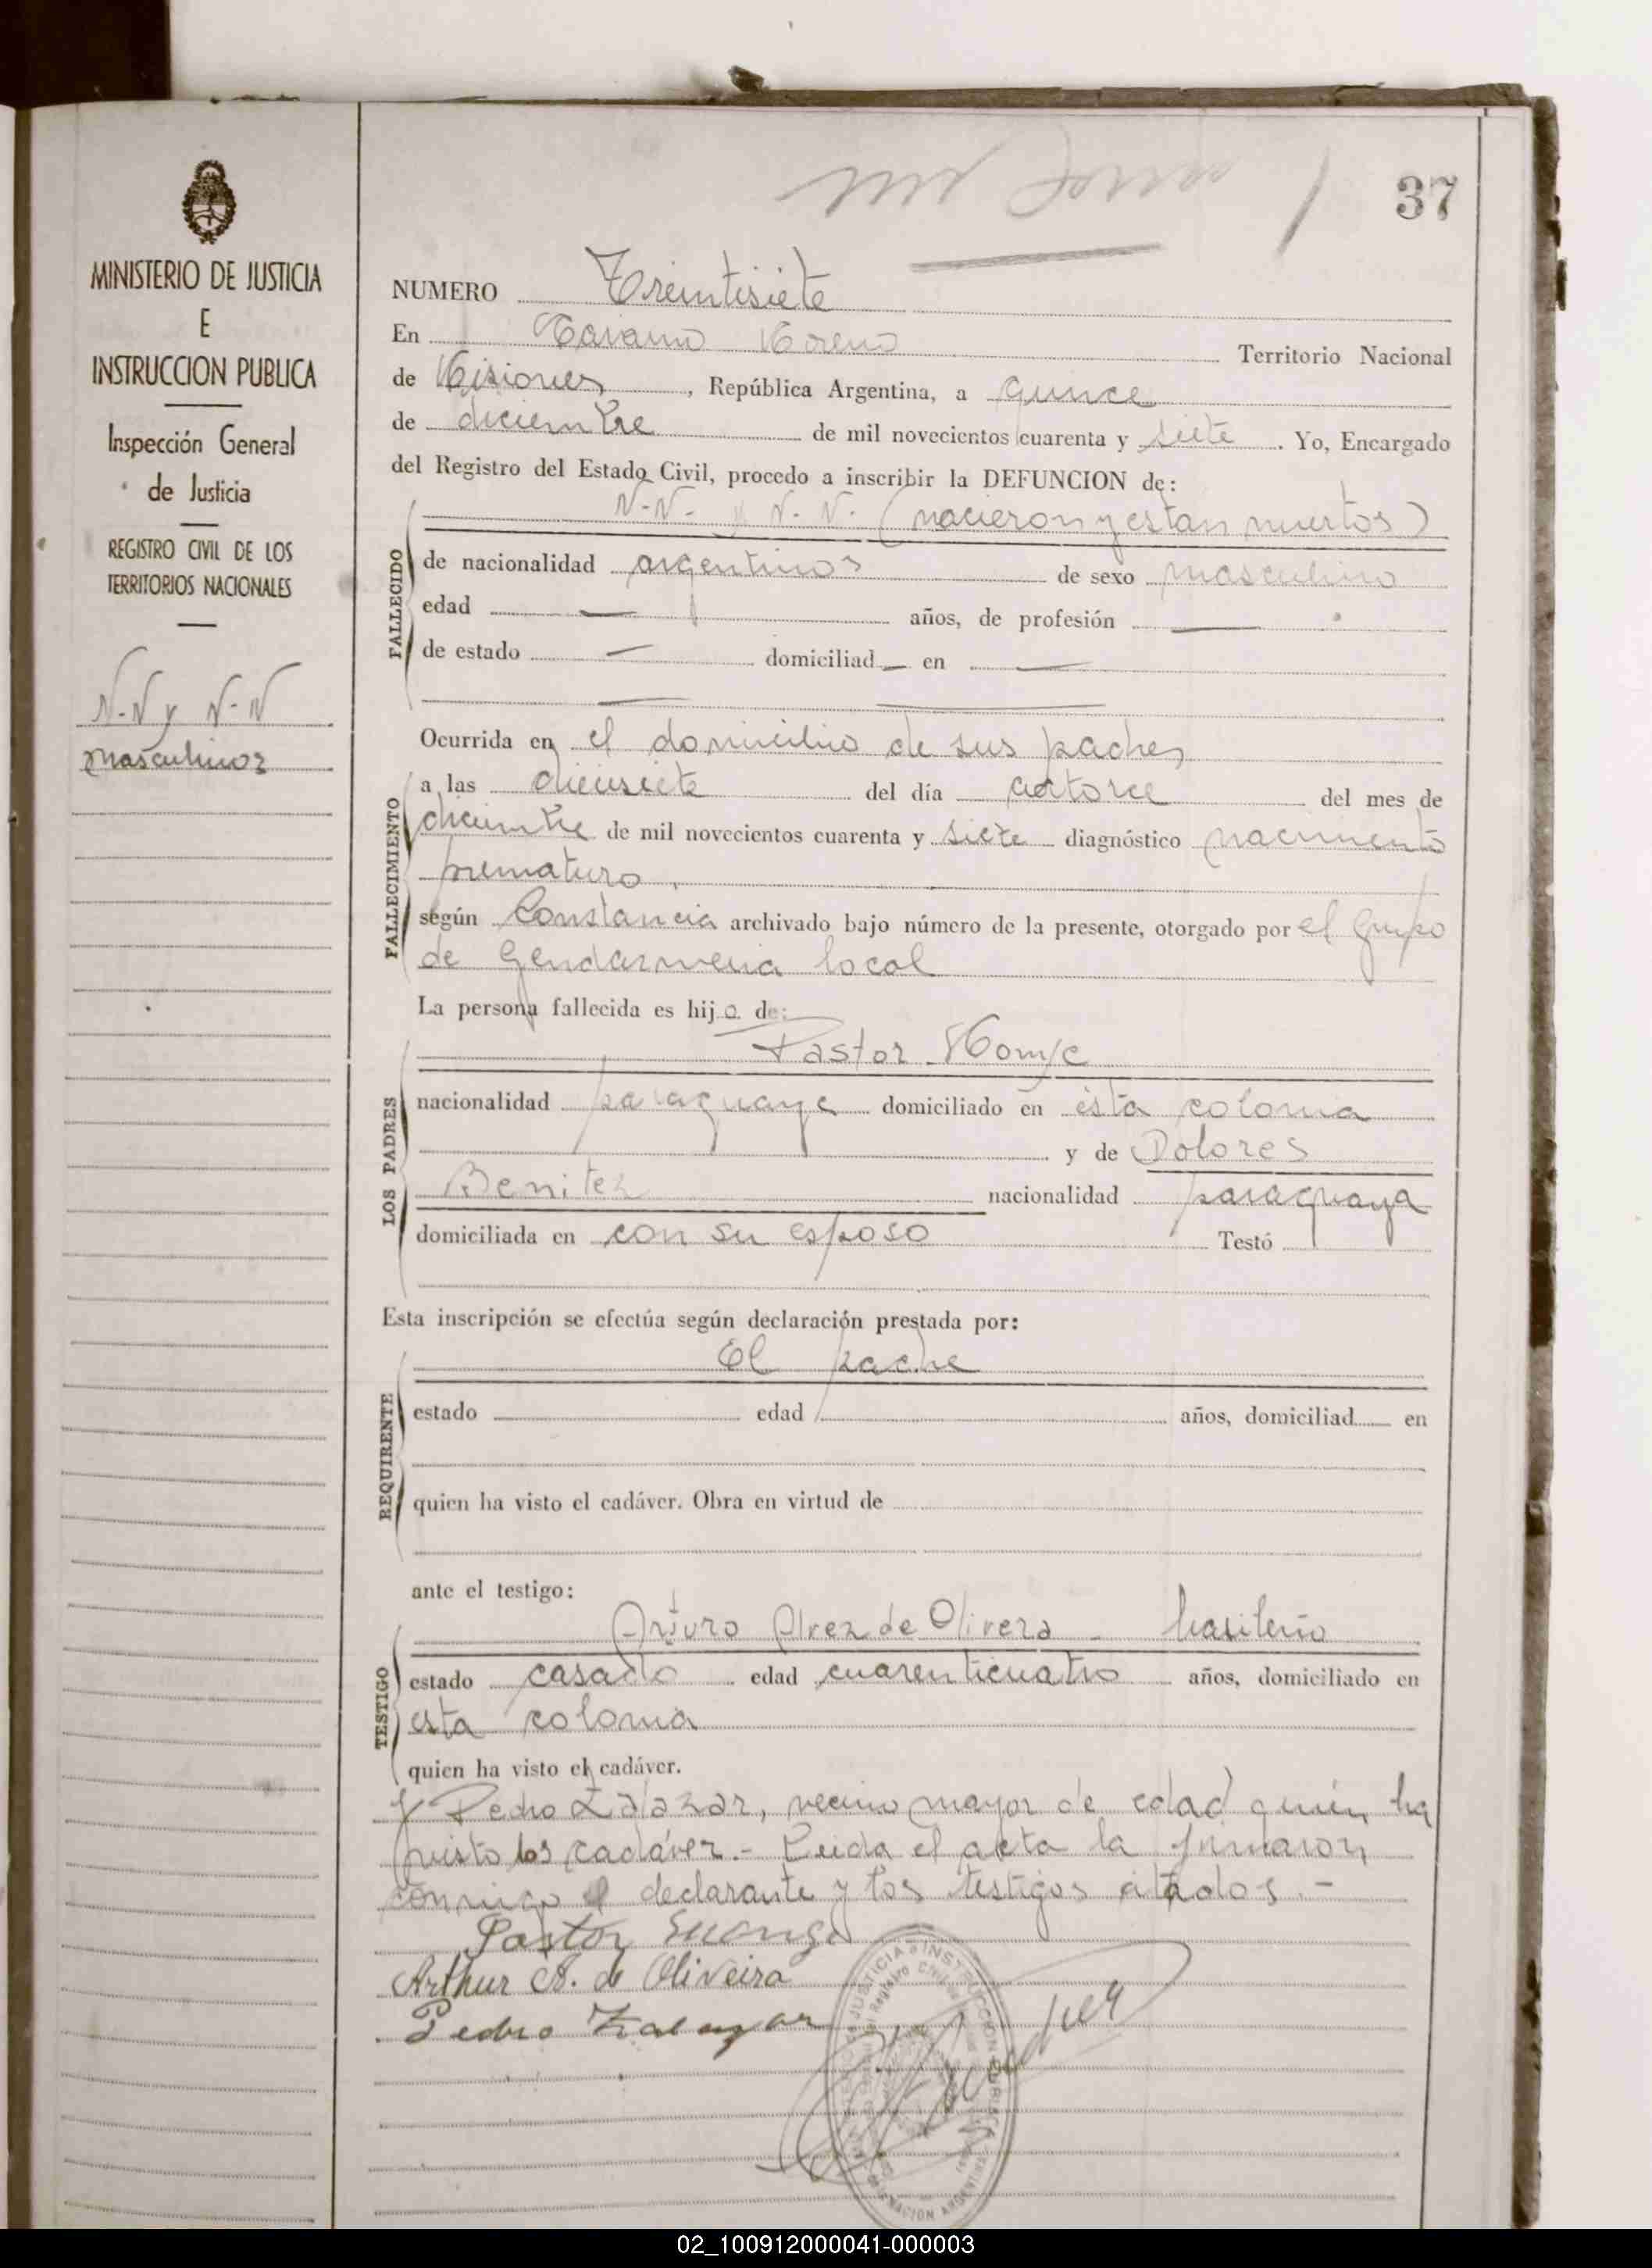 37
MINISTERIO DE JUSTICIA
E
INSTRUCCION PUBLICA
Inspección General
de Justicia
REGISTRO CIVIL DE LOS
TERRITORIOS NACIONALES
N-N y N-N
masculinos
NUMERO Treintisiete
En Moreno Territorio Nacional
de Misiones, República Argentina, a quince
de diciembre de mil novecientos cuarenta y siete. Yo, Encargado
del Registro del Estado Civil, procedo a inscribir la DEFUNCION de:
FALLECIDO
N-N- y N-N- (nacieron y estan muertos)
de nacionalidad argentinos de sexo masculino
edad — años, de profesión —
de estado — domiciliad — en —
FALLECIMIENTO
Ocurrida en el domicilio de sus padres
a las diecisiete del día catorce del mes de
diciembre de mil novecientos cuarenta y siete diagnóstico nacimiento
prematuro.
según Constancia archivado bajo número de la presente, otorgado por el grupo
de Gendarmeria local
La persona fallecida es hijo de:
LOS PADRES
Pastor
nacionalidad paraguaya domiciliado en esta colonia
y de Dolores
Benitez nacionalidad paraguaya
domiciliada en con su esposo Testó
Esta inscripción se efectúa según declaración prestada por:
REQUIRENTE
El padre
estado edad años, domiciliad en
quien ha visto el cadáver. Obra en virtud de
ante el testigo:
TESTIGO
Arturo Alvez de Olivera - brasileño
estado casado edad cuarenticuatro años, domiciliado en
esta colonia
quien ha visto el cadáver.
y Pedro Zalazar, vecino mayor de edad quien ha
visto los cadáver.- Leida el acta la firmaron
conmigo el declarante y los testigos citados.-
Pastor
Arthur A. de Oliveira
Pedro Zalazar
02_100912000041-000003